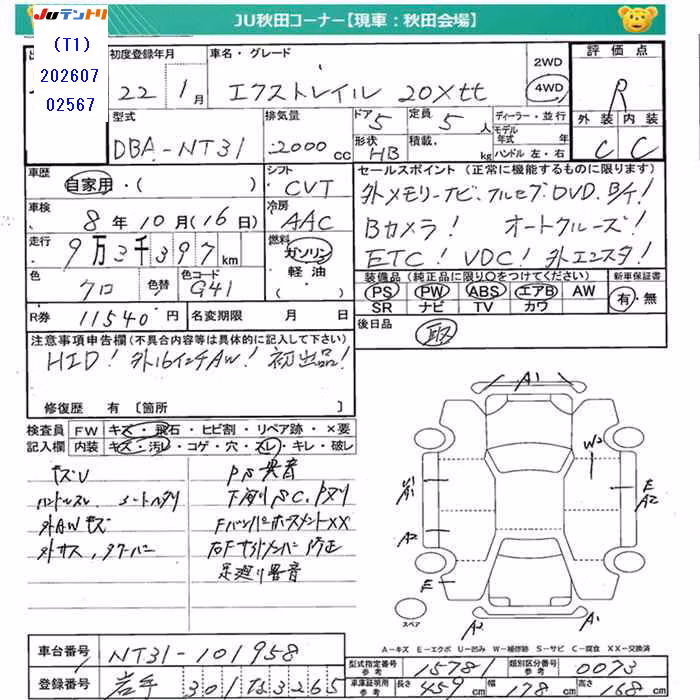 JUテントリ
JU秋田コーナー【現車：秋田会場】
(T1)
202607
02567
初度登録年月
22年 1月
車名・グレード
エクストレイル 20Xtt
2WD
4WD
評価点
R
外装 内装
C C
型式
DBA-NT31
排気量
2000 cc
ドア 5
形状 HB
定員 5 人
積載. kg
ディーラー・並行
モデル年式 年
ハンドル 左・右
車歴
自家用・( )
シフト
CVT
車検
8年10月(16日)
冷房
AAC
走行
9万3千397km
燃料
ガソリン
軽油
色
クロ
色替
色コード
G41
R券
11540円
名変期限 月 日
セールスポイント（正常に機能するものに限ります）
外メモリーナビ、フルセグ、DVD、B/T!
Bカメラ! オートクルーズ!
ETC! VDC! 外エンスタ!
装備品（純正品に限り○をつけてください）
PS PW ABS エアB AW
SR ナビ TV カワ
新車保証書
有・無
後日品
取
注意事項申告欄（不具合内容等は具体的に記入して下さい）
HID! 外16インチAW! 初出品!
修復歴 有〔箇所 〕
検査員記入欄
FW キズ・飛石・ヒビ割・リペア跡・×要
内装 キズ・汚レ・コゲ・穴・スレ・キレ・破レ
キズU
ハンドルスレ、シートヘタリ
外AWキズ
外サス、タワーバー
PS異音
下廻りSC、Pヌリ
FバンパーホースメントXX
右Fサイドメンバー修正
足廻り異音
A1
W2
U1
A1
E
A2
A2
E
A2
A1
スペア
A－キズ E－エクボ U－凹み W－補修跡 S－サビ C－腐食 XX－交換済
車台番号
NT31-101958
登録番号
岩手 301 さ 3265
型式指定番号 15781
類別区分番号 0073
車庫証明用参考 長さ 459cm 幅 178cm 高さ 168cm